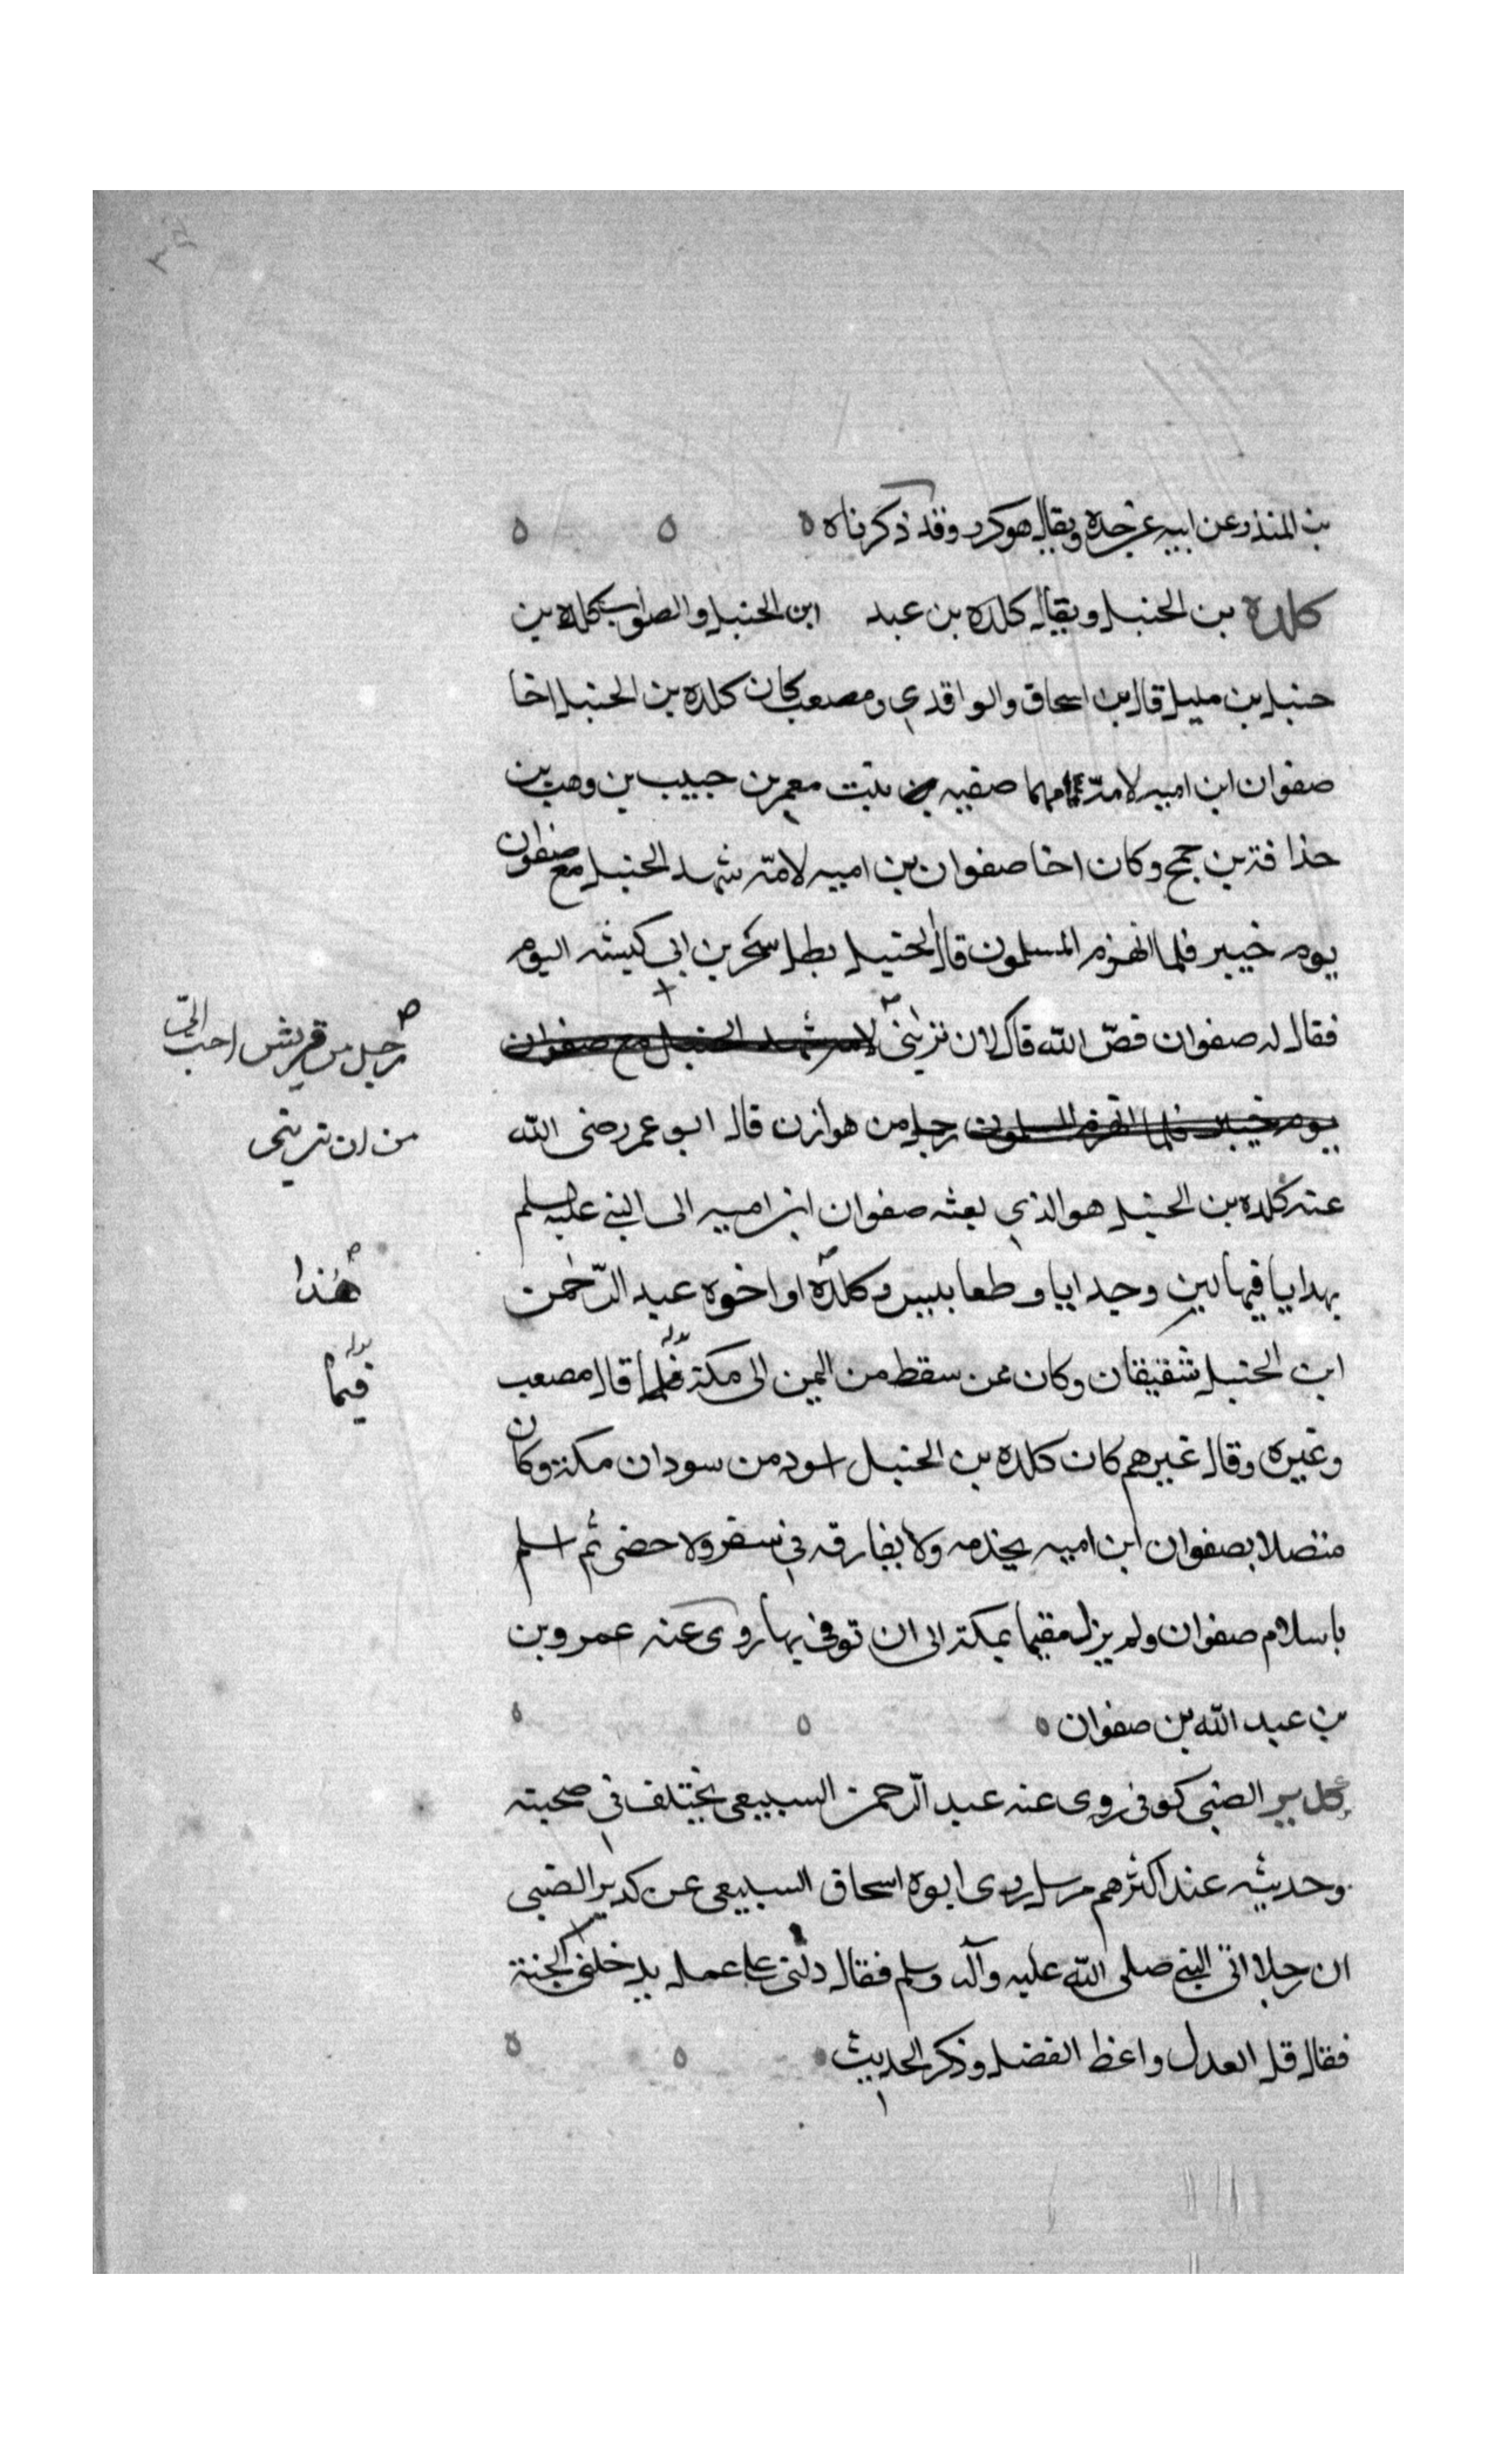 بن المنذر عن ابيه عن جده ويقال هو كرد وقد ذكرناه ه
كلدة بن الحنبل ويقال كلده بن عبد ابن الحنبل والصواب كلده بن
حنبل بن مليل قال ابن اسحاق والواقدي ومصعب كان كلده بن الحنبل اخا
صفوان ابن اميه لامه امهما صفيه بنت معمر بن حبيب بن وهب بن
حذافة بن جمح وكان اخا صفوان بن اميه لامه شهد الحنبل مع صفوان
يوم خيبر فلما انهزم المسلمون قال الحنبل بطل سحر بن ابي كبشه اليوم
فقال له صفوان فض الله فاك لان تربني لامه شهد الحنبل مع صفوان
رجل من قريش احب الي
يوم خيبر فلما انهزم المسلمون رجل من هوازن قال ابو عمر رضى الله
من ان تربني
عنه كلده بن الحنبل هو الذي بعثه صفوان ابن اميه الى النبي عليه سلم
بهدايا فيها لبن وجدايا وطعابيس وكلدة او اخوه عبد الرحمن
هذا
ابن الحنبل شقيقان وكان ممن سقط من اليمن الى مكة فلما قال مصعب
فيما
وغيره وقال غيرهم كان كلده بن الحنبل اسود من سودان مكة وكان
متصلا بصفوان ابن اميه يخدمه ولا يفارقه في سفر ولا حضر ثم اسلم
باسلام صفوان ولم يزل مقيما بمكة الى ان توفي بها روى عنه عمرو بن
بن عبد الله بن صفوان ه
كدير الضبى كوفي روى عنه عبد الرحمن السبيعي يختلف في صحبته
وحديثه عند اكثرهم مرسل روى ابوه اسحاق السبيعي عن كدير الضبى
ان رجلا اتى النبي صلى الله عليه وآله وسلم فقال دلني على عمل يدخلني الجنة
فقال قل العدل واعط الفضل وذكر الحديث